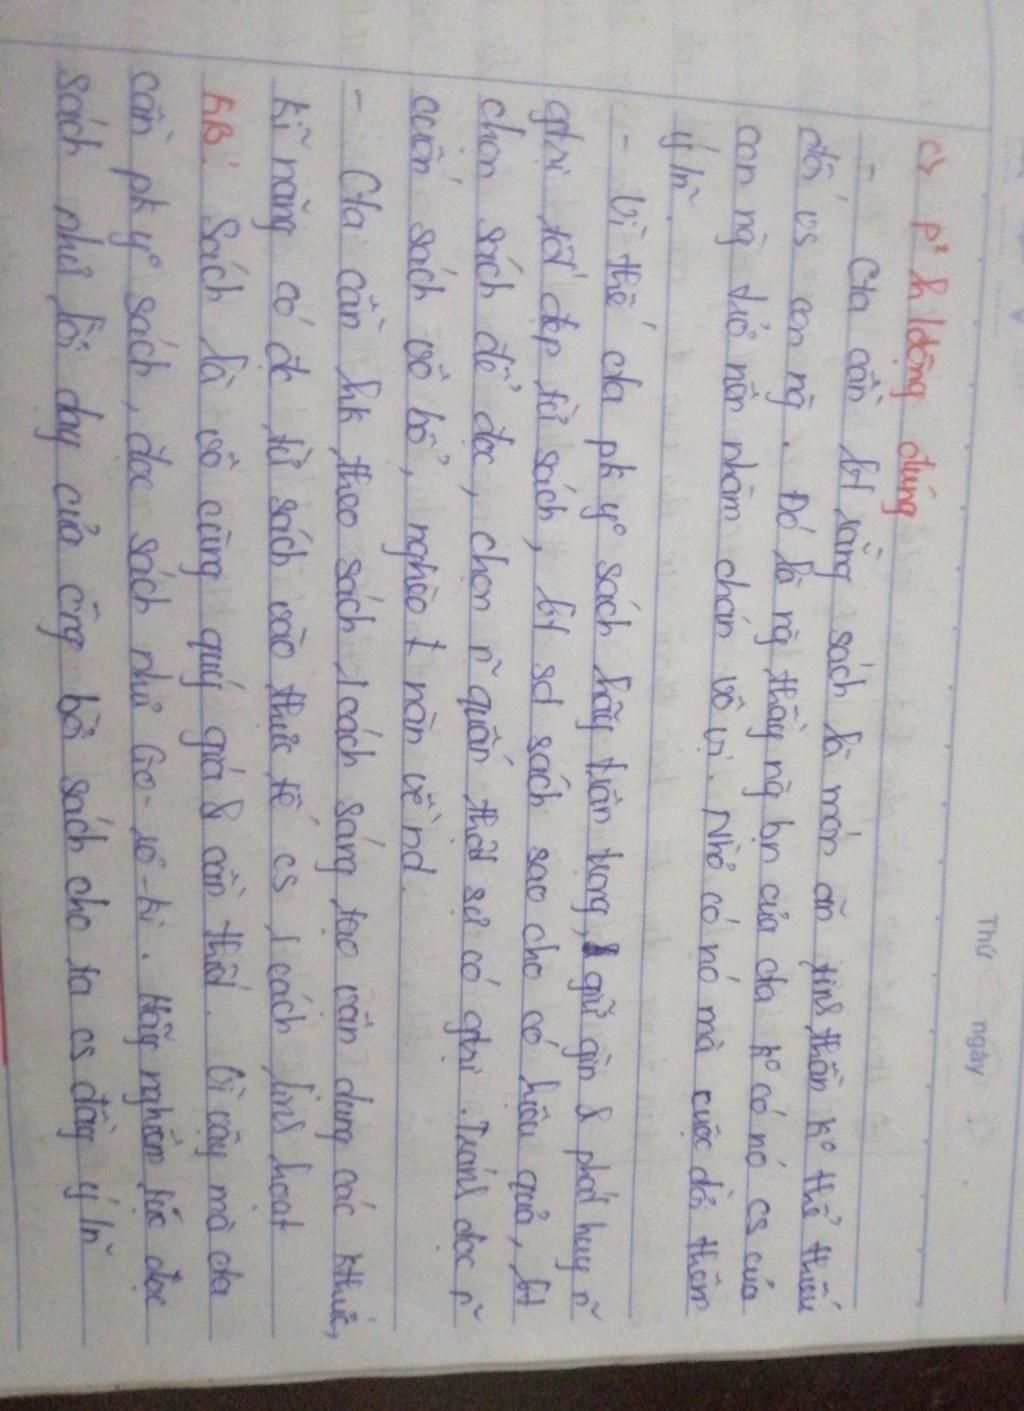 Thứ ngày
c, p² h lđộng đúng
- Cta cần bt rằng sách là món ăn tinh thần k° thể thiếu
đối vs con ng̀. Đó là ng̀ thầy ng̀ bạn của cta k° có nó cs của
con ng̀ trở nên nhàm chán vô vị. Nhờ có nó mà cuộc đời thêm
ý / n̄.
- Vì thế cta pk y° sách hãy trân trọng, giữ gìn & phát huy n̄
gtrị tốt đẹp từ sách, bt sd sách sao cho có hiệu quả, bt
chọn sách để đọc, chọn n̄ quấn thật sự có gtrị. Tránh đọc n̄
cuốn sách vô bổ, nghèo t nàn về nd.
- Cta cần hk theo sách 1 cách sáng tạo vận dụng các kthức,
kĩ năng có đc từ sách vào thực tế cs 1 cách linh hoạt
KB: Sách là vô cùng quý giá & cần thiết. Vì vậy mà cta
cần pk y° sách, đọc sách như Go-rơ-ki. Hãy nghiêm túc đọc
sách như lời dạy của ông bởi sách cho ta cs đầy ý / n̄